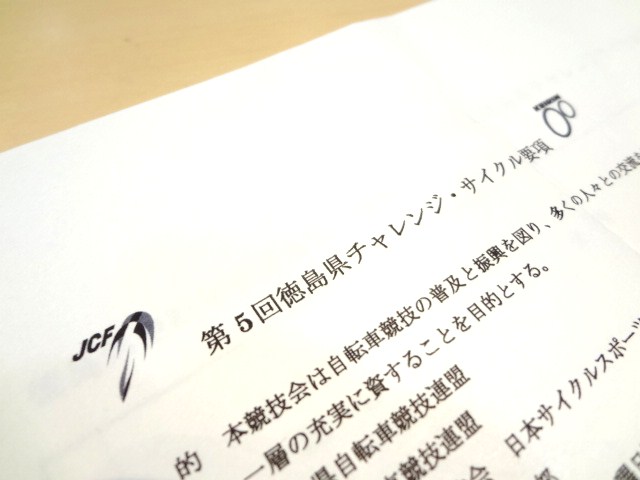 第5回徳島県チャレンジ・サイクル要項
JCF
的 本競技会は自転車競技の普及と振興を図り、多くの人々との交流
一層の充実に資することを目的とする。
県自転車競技連盟
競技連盟
日本サイクルスポーツ